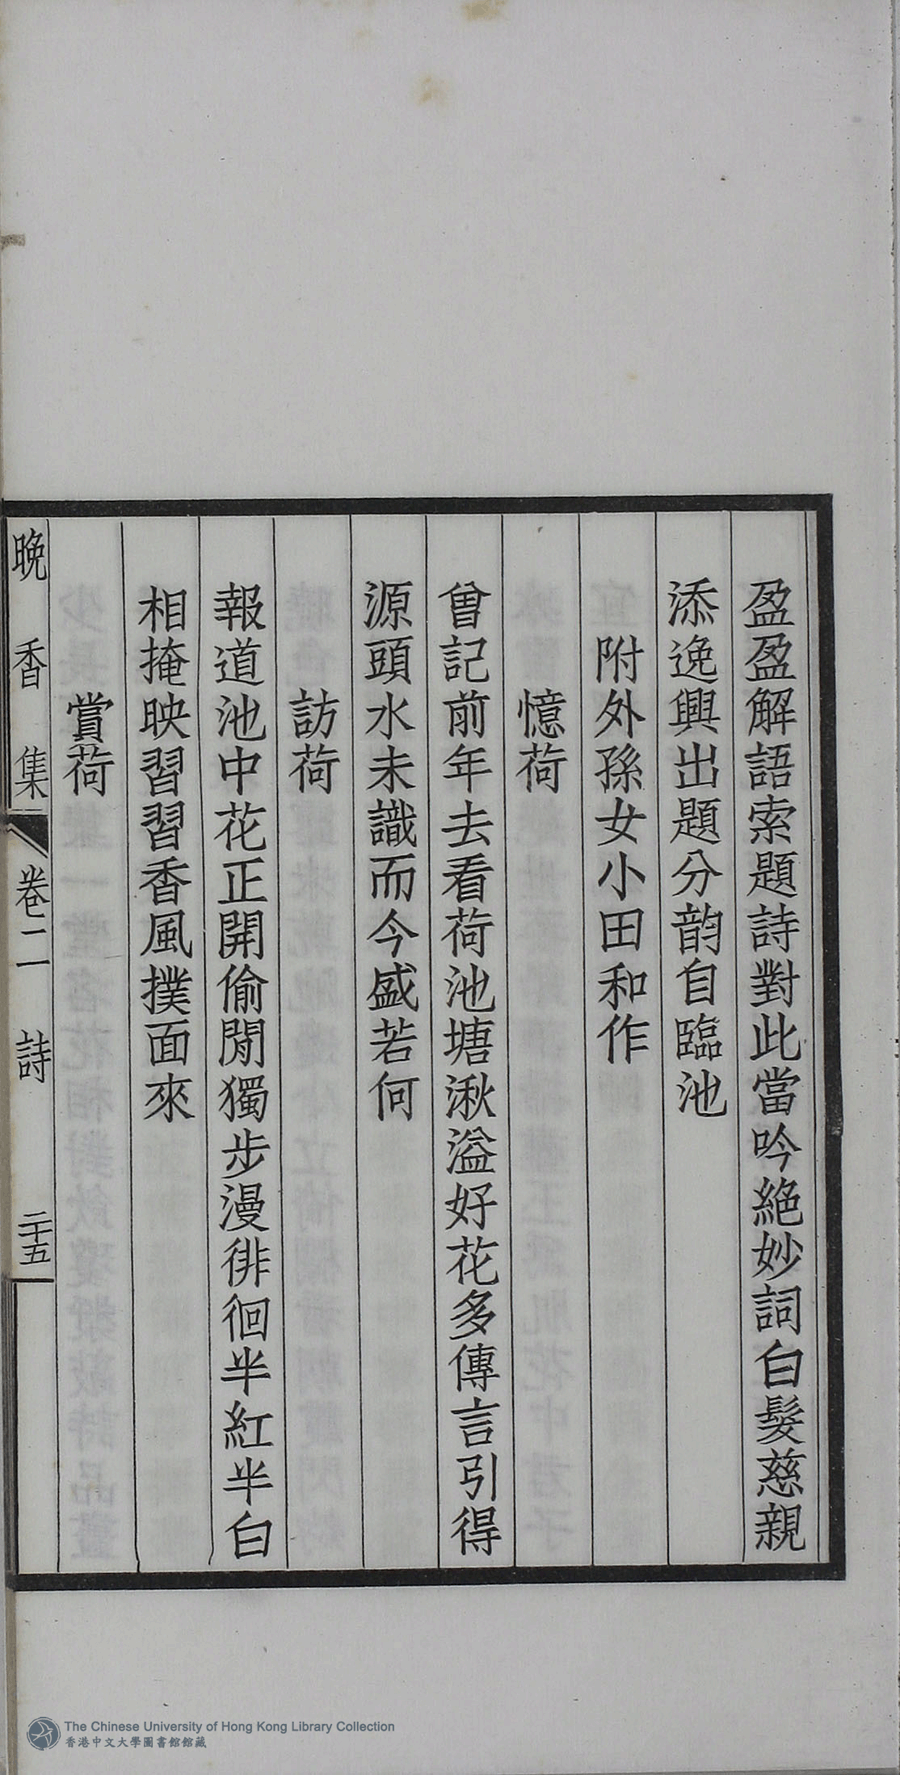 盈盈解語索題詩對此當吟絕妙詞白髮慈親
添逸興出題分韵自臨池
附外孫女小田和作
憶荷
曾記前年去看荷池塘湫溢好花多傳言引得
源頭水未識而今盛若何
訪荷
報道池中花正開偷閒獨步漫徘徊半紅半白
相掩映習習香風撲面來
賞荷
晚香集 卷二 詩 二十五
The Chinese University of Hong Kong Library Collection
香港中文大學圖書館館藏